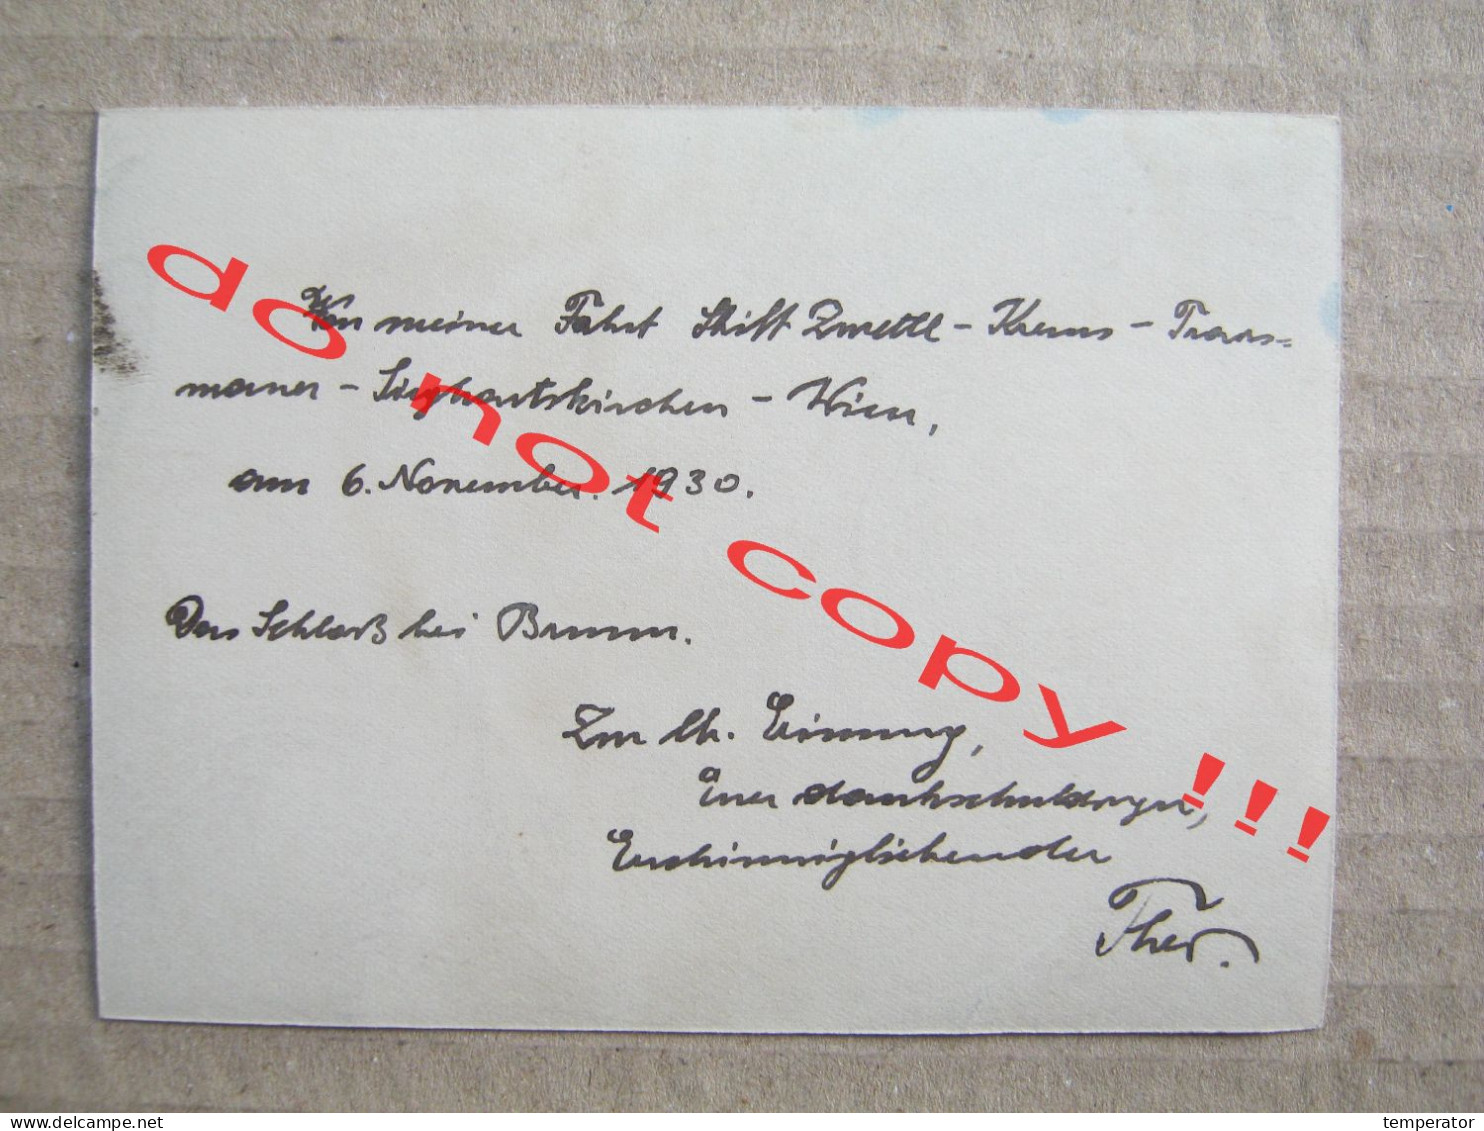 Von meiner Fahrt Stift Zwettl - Krems - Trais=
mauer - Sieghartskirchen - Wien,
am 6. November 1930.
Das Schloß bei Brunn.
Zur lb. Erinnerung,
Euer dankschuldiger,
Ther.
do not copy !!!
www.delcampe.net
temperator